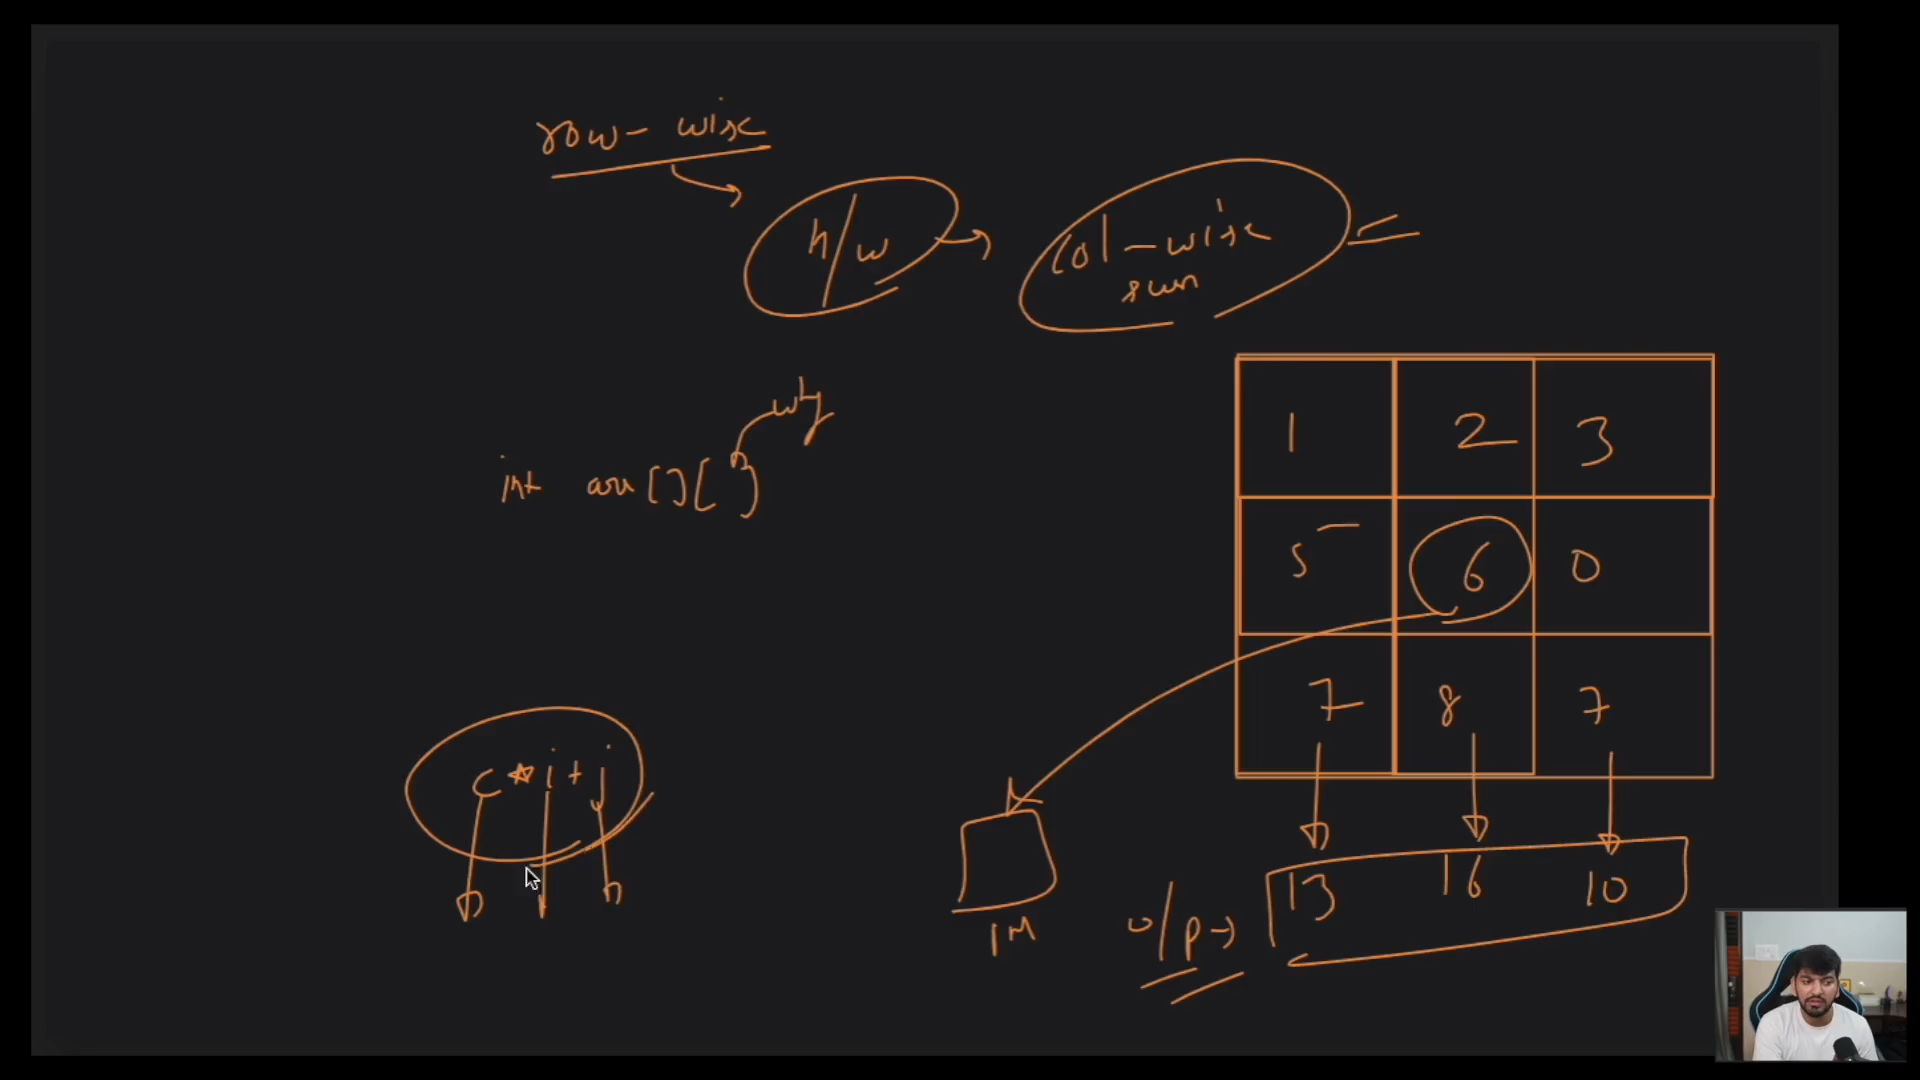 row-wise
h/w
col-wise
sum
int arr[][ ]
why
1 2 3
5 6 0
7 8 7
c*i+j
1M
o/p→ 13 16 10